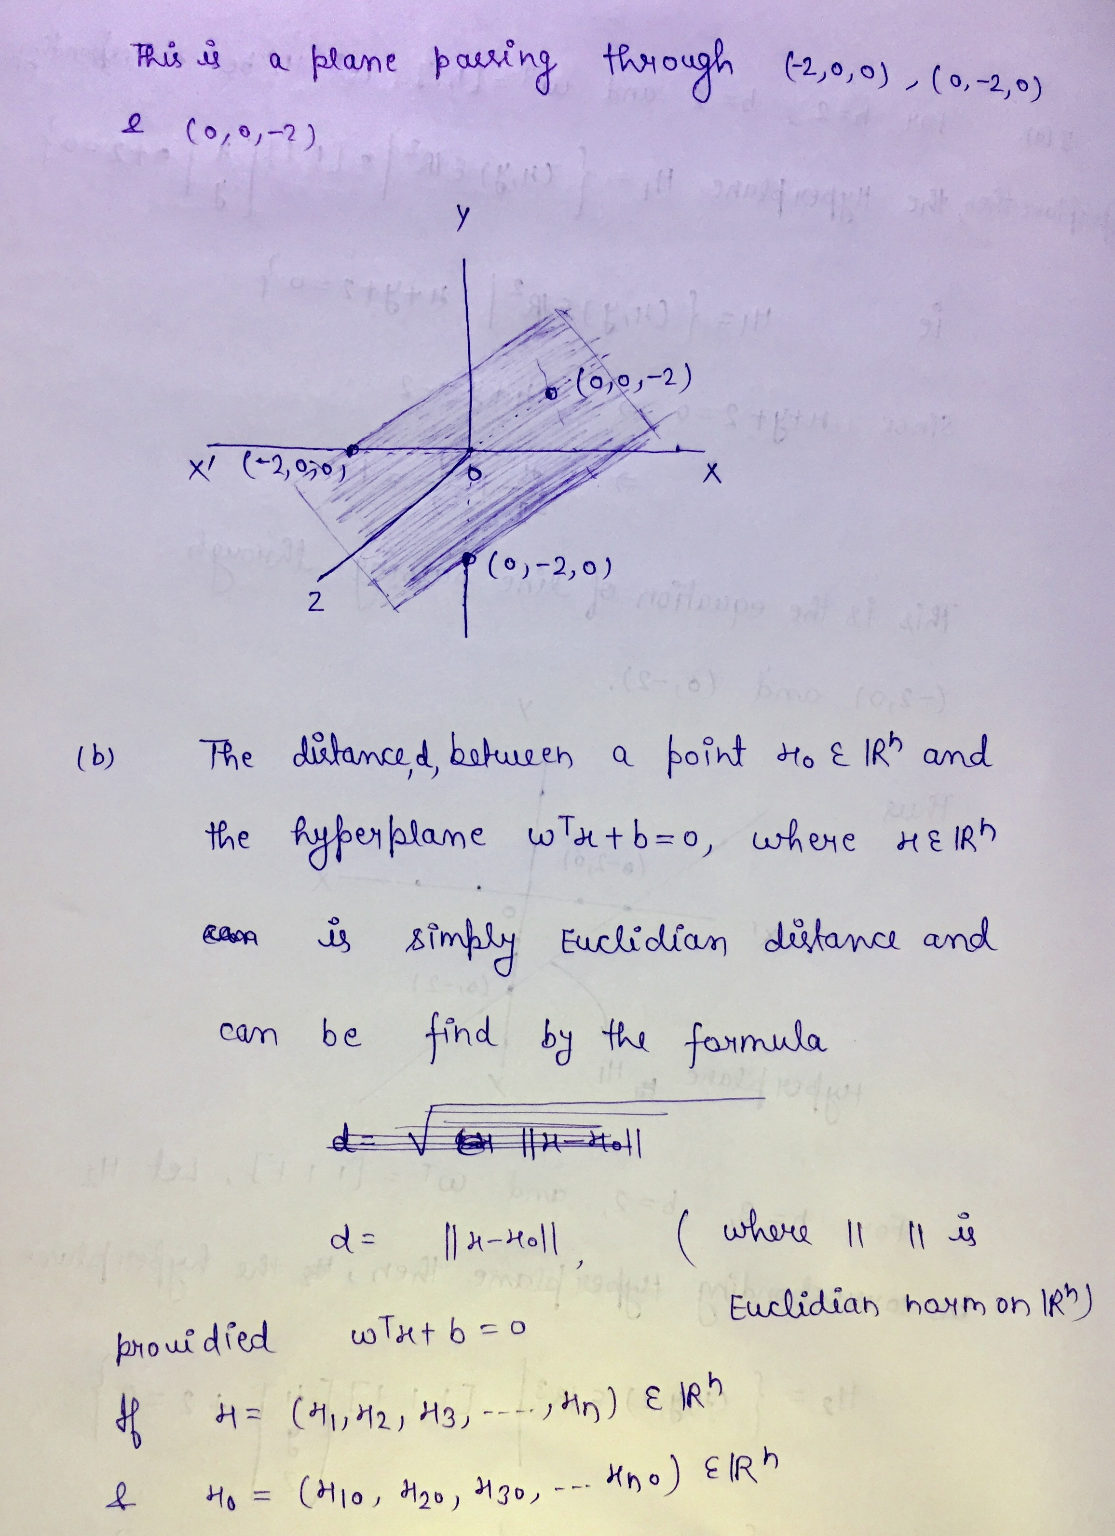 This is a plane passing through (-2,0,0), (0,-2,0)
& (0,0,-2)
Y
(0,0,-2)
X' (-2,0,0)
0
X
(0,-2,0)
Z
(b) The distance,d, between a point x₀ ε ℝⁿ and
the hyperplane wᵀx+b=0, where x ε ℝⁿ
is simply Euclidian distance and
can be find by the formula
d= √ ||x-x₀||
d= ||x-x₀||, ( where || || is
Euclidian norm on ℝⁿ)
provi died wᵀx+b=0
If x = (x₁, x₂, x₃, -----, xₙ) ε ℝⁿ
& x₀ = (x₁₀, x₂₀, x₃₀, --- xₙ₀) ε ℝⁿ